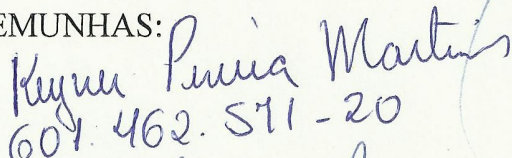 EMUNHAS:
Keyner Pereira Martins
601.462.571-20